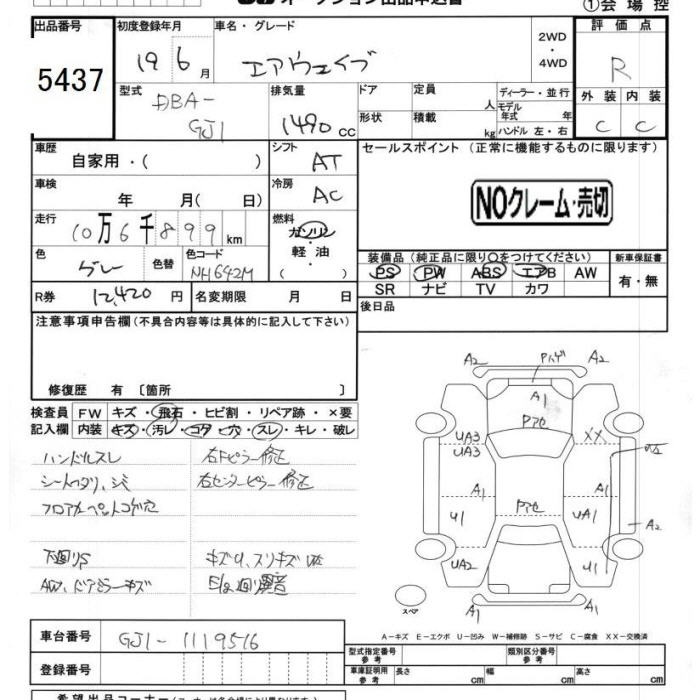 オークション出品申込書
①会場控
出品番号
5437
初度登録年月
19 6月
車名・グレード
エアウェイブ
2WD
・
4WD
評価点
R
外装 内装
C C
型式
DBA-
GJ1
排気量
1490cc
ドア
定員
人
形状
積載
kg
ディーラー・並行
モデル
年式 年
ハンドル 左・右
車歴
自家用・( )
シフト
AT
セールスポイント (正常に機能するものに限ります)
NOクレーム・売切
車検
年 月( 日)
冷房
AC
走行
10万6千899km
燃料
ガソリン
軽油
( )
色
グレー
色替
色コード
NH642M
装備品 (純正品に限り○をつけてください)
PS PW ABS エアB AW
SR ナビ TV カワ
新車保証書
有・無
R券 12,420円
名変期限 月 日
後日品
注意事項申告欄(不具合内容等は具体的に記入して下さい)
修復歴 有〔箇所 〕
検査員
記入欄
FW キズ・飛石・ヒビ割・リペア跡・×要
内装 キズ・汚レ・コゲ・穴・スレ・キレ・破レ
ハンドルスレ
シートコゲ、シミ
フロアカーペットコゲ穴
下回りS
AW、ドアミラーキズ
右Fピラー修正
右センターピラー修正
キズU、スリキズ
E/g廻り異音
A2
A2
A1
Pアセ
UA3
UA3
XX
A1
U1
Pアセ
A1
UA1
A2
UA2
U1
A1
A1
スペア
A-キズ E-エクボ U-凹み W-補修跡 S-サビ C-腐食 XX-交換済
車台番号
GJ1-1119516
登録番号
型式指定番号
参考
類別区分番号
参考
車庫証明用
参考
長さ cm
幅 cm
高さ cm
希望出品コーナー